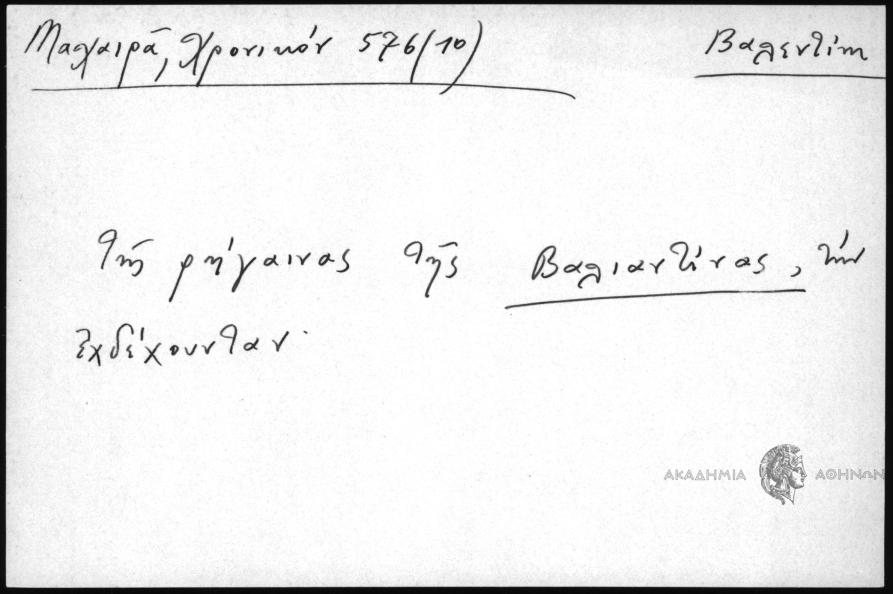 Μαχαιρᾶ, Χρονικόν 576(10)
Βαλεντίνη
τῆς ρήγαινας τῆς Βαλιαντίνας, τὴν
ἐχδέχουνταν·
ΑΚΑΔΗΜΙΑ ΑΘΗΝΩΝ